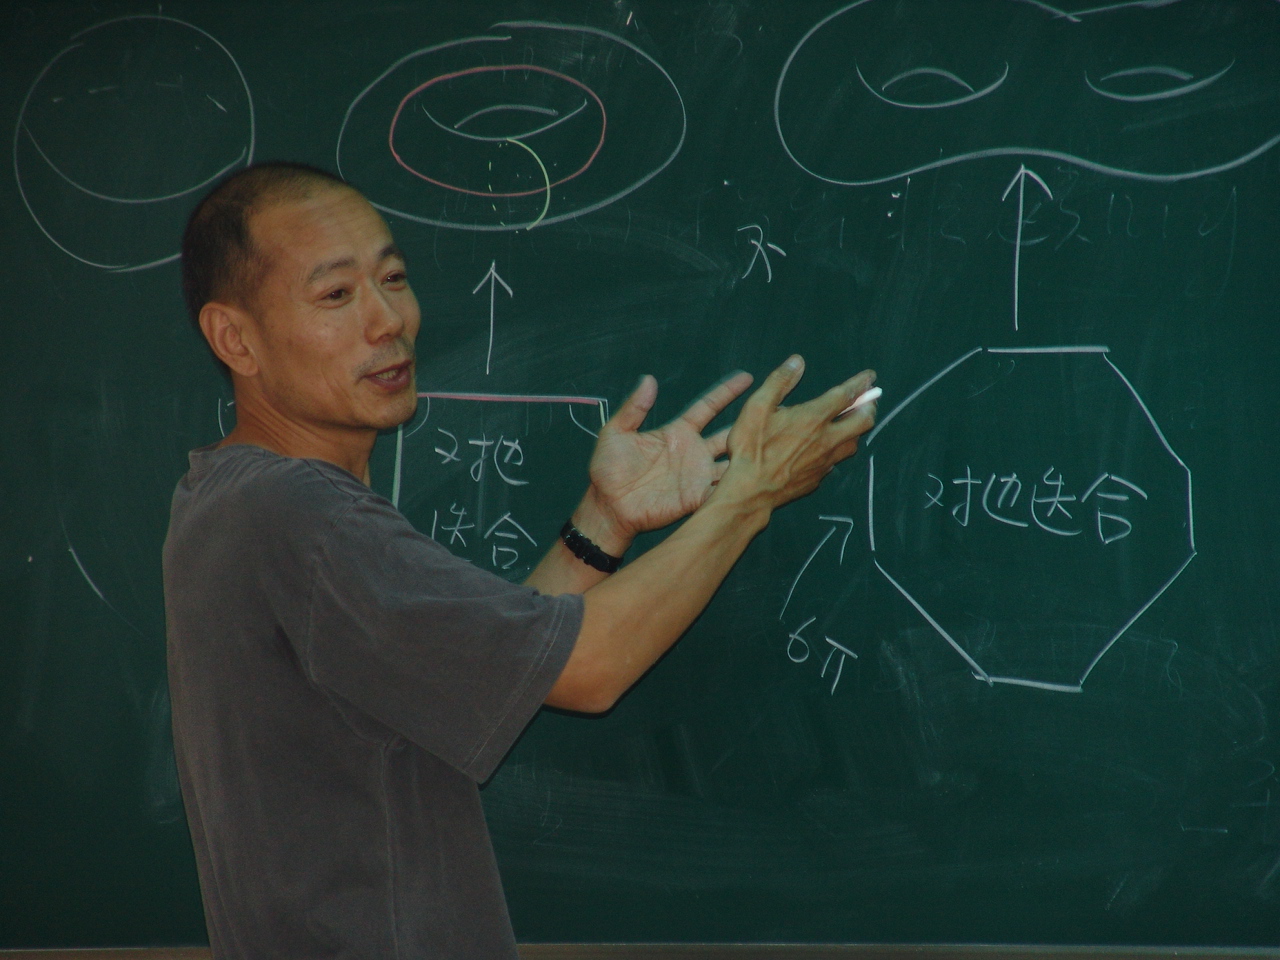 不
对边
迭合
对边迭合
6π